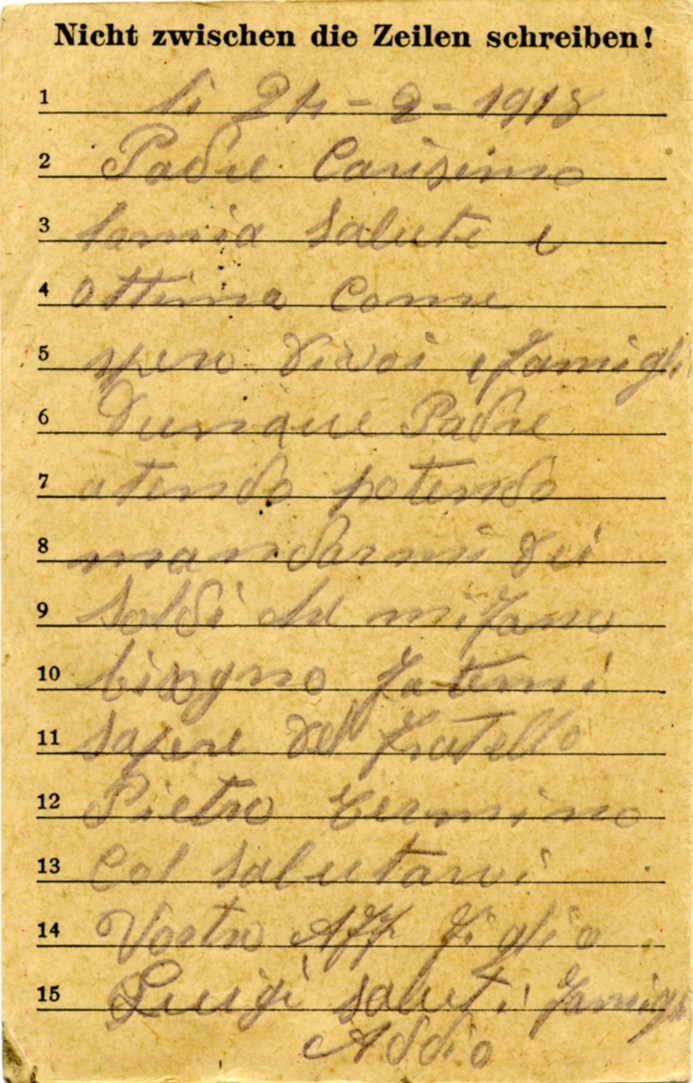 Nicht zwischen die Zeilen schreiben!
1 li 24-2-1918
2 Padre Carisimo
3 lamia salute e
4 ottima come
5 spero divoi e famigli
6 Dunque Padre
7 atendo potendo
8 mandarmi dei
9 soldi che mi fano
10 bisogno fatemi
11 sapere del fratello
12 Pietro termino
13 col salutarvi
14 Vostro Aff figlio
15 Luigi saluti famigli
Addio